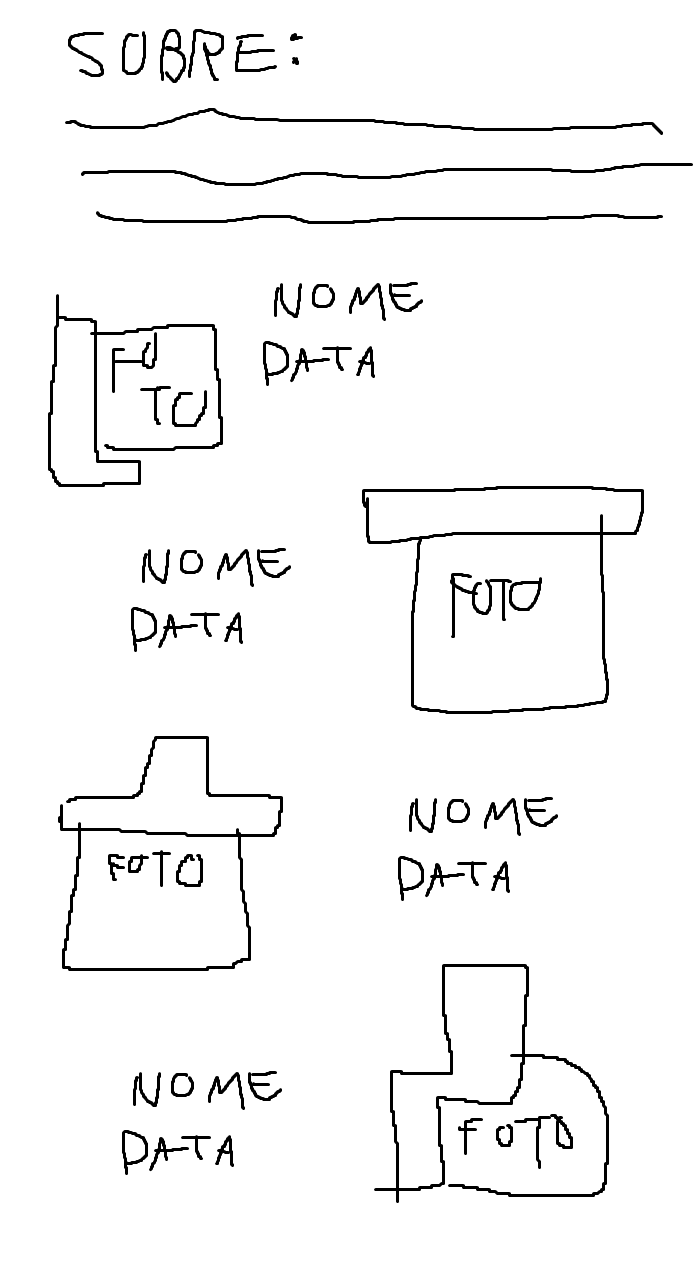 SOBRE:
NOME
DATA
FO
TO
NOME
DATA
FOTO
FOTO
NOME
DATA
NOME
DATA
FOTO